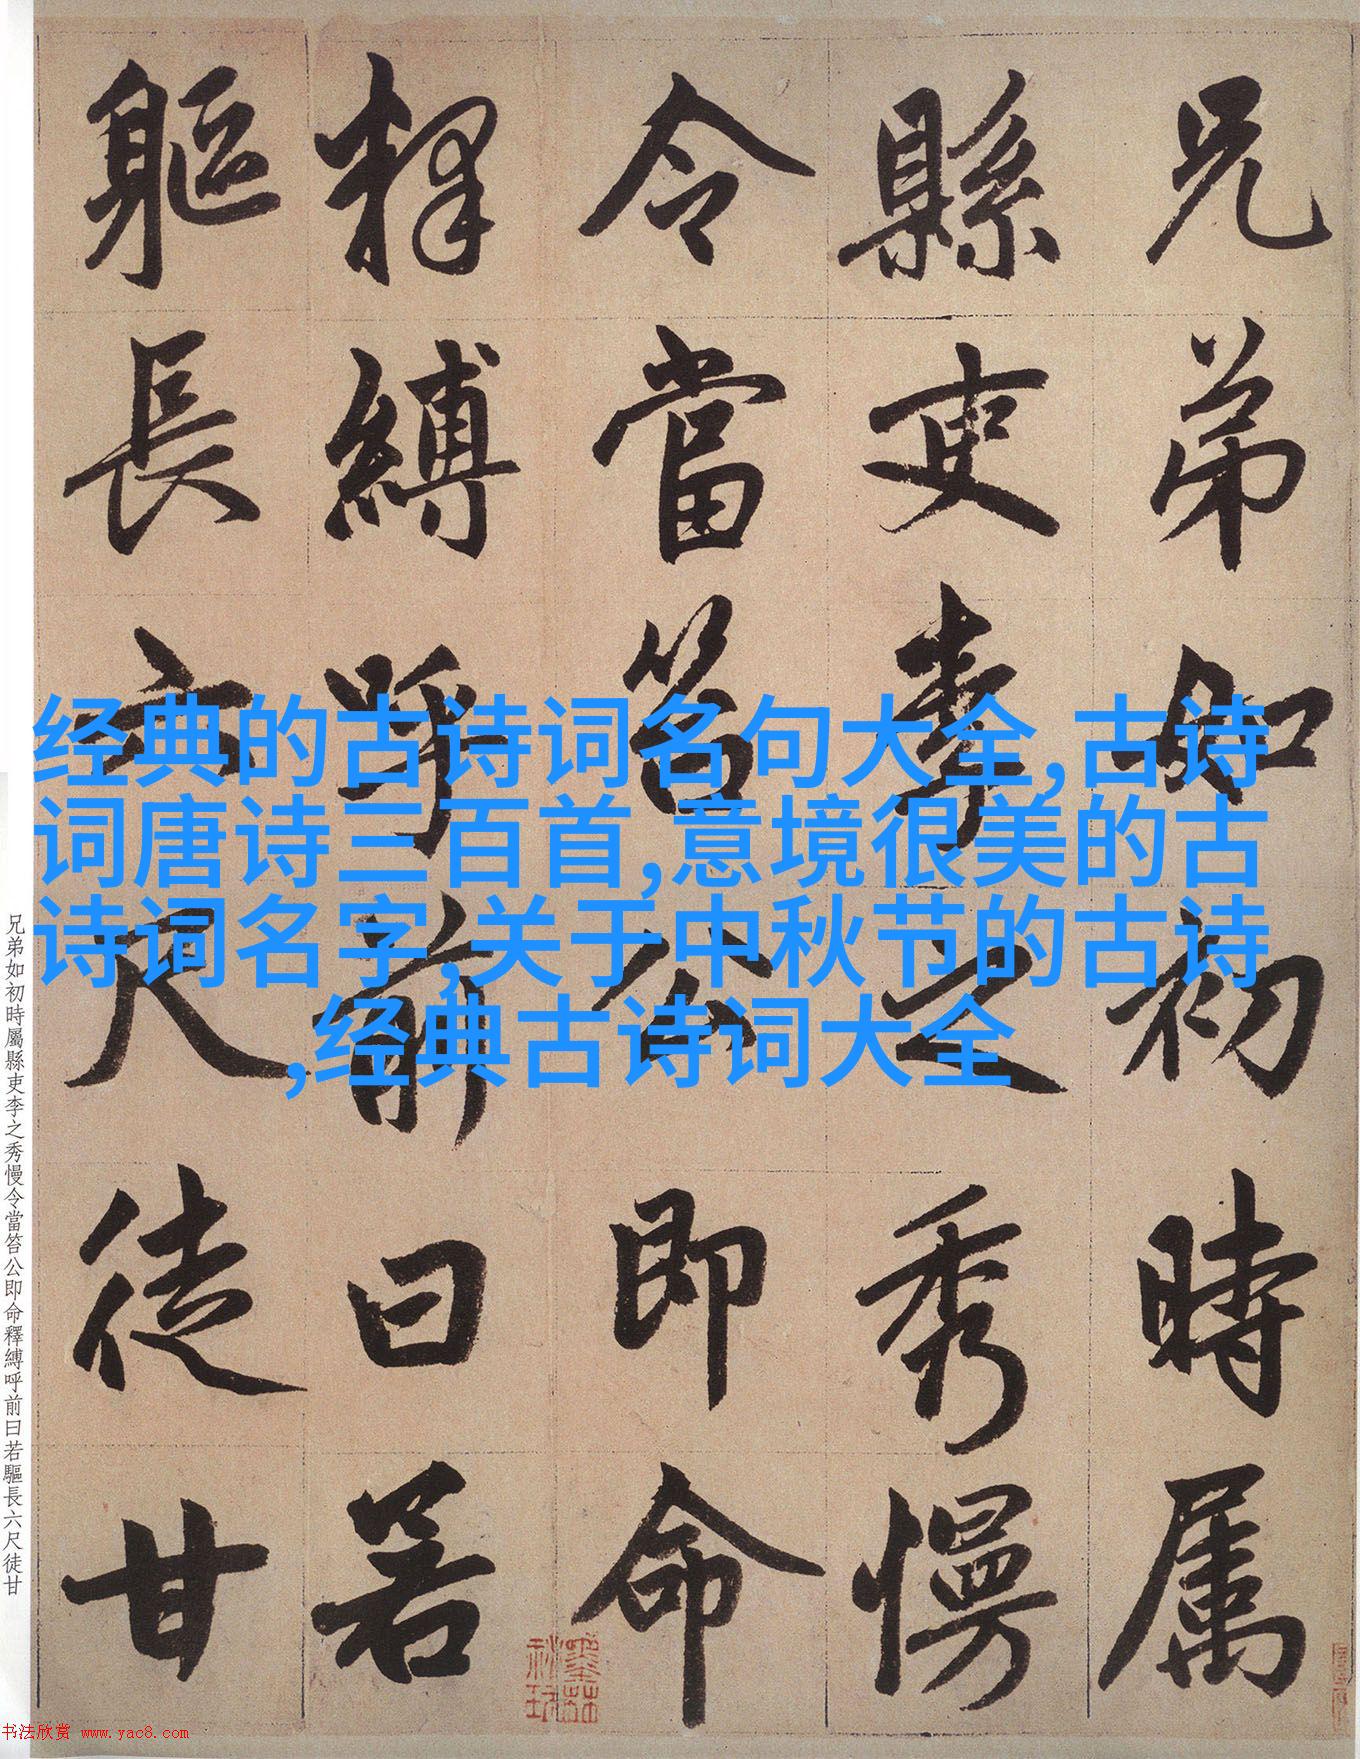 兄弟如初時属
縣吏李之秀慢
令當笞公即命
释縛呼前曰若
軀長六尺徒甘
经典的古诗词名句大全,古诗
词唐诗三百首,意境很美的古
诗词名字,关于中秋节的古诗
,经典古诗词大全
兄弟如初時屬縣吏李之秀慢令當笞公即命釋縛呼前曰若驅長六尺徒甘
书法欣赏 www.yac8.com